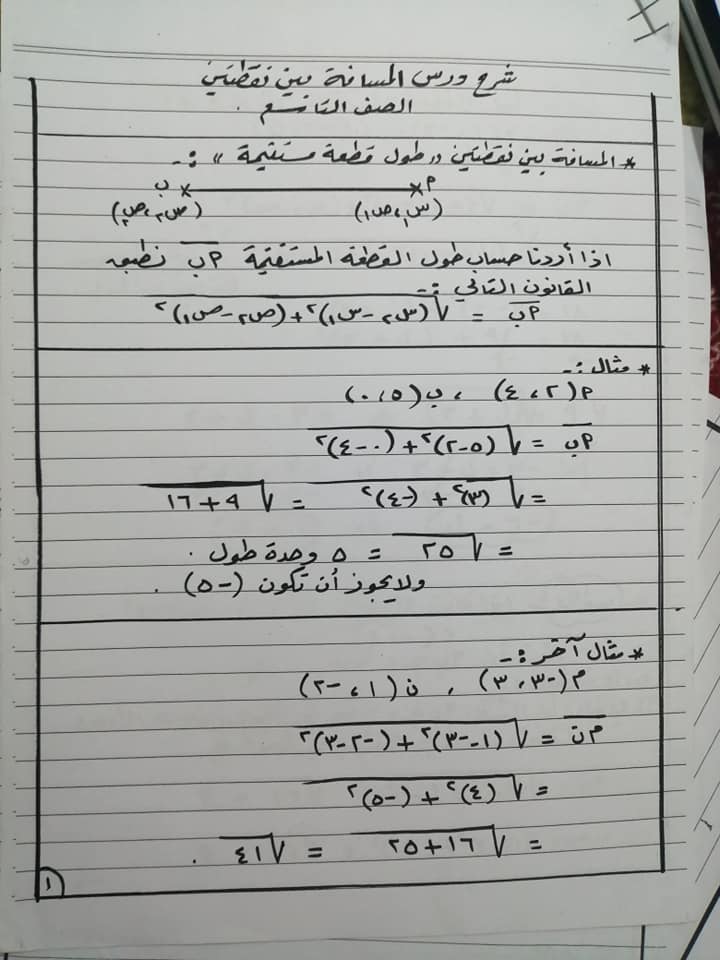 شرح درس المسافة بين نقطتين
الصف التاسع .
* المسافة بين نقطتين "طول قطعة مستقيمة" :-
ب م
(س٢، ص٢) (س١، ص١)
اذا أردنا حساب طول القطعة المستقيمة م ب نطبق
القانون التالي :-
م ب = √(س٢ - س١)² + (ص٢ - ص١)²
* مثال :-
م (٢، ٤) ، ب (٥، ٠)
م ب = √(٥-٢)² + (٠-٤)²
= √(٣)² + (-٤)² = √٩ + ١٦
= √٢٥ = ٥ وحدة طول .
ولايجوز أن تكون (-٥) .
* مثال آخر :-
م (-٣، ٣) ، ن (١، -٢)
م ن = √(١--٣)² + (-٢-٣)²
= √(٤)² + (-٥)²
= √١٦ + ٢٥ = √٤١ .
١